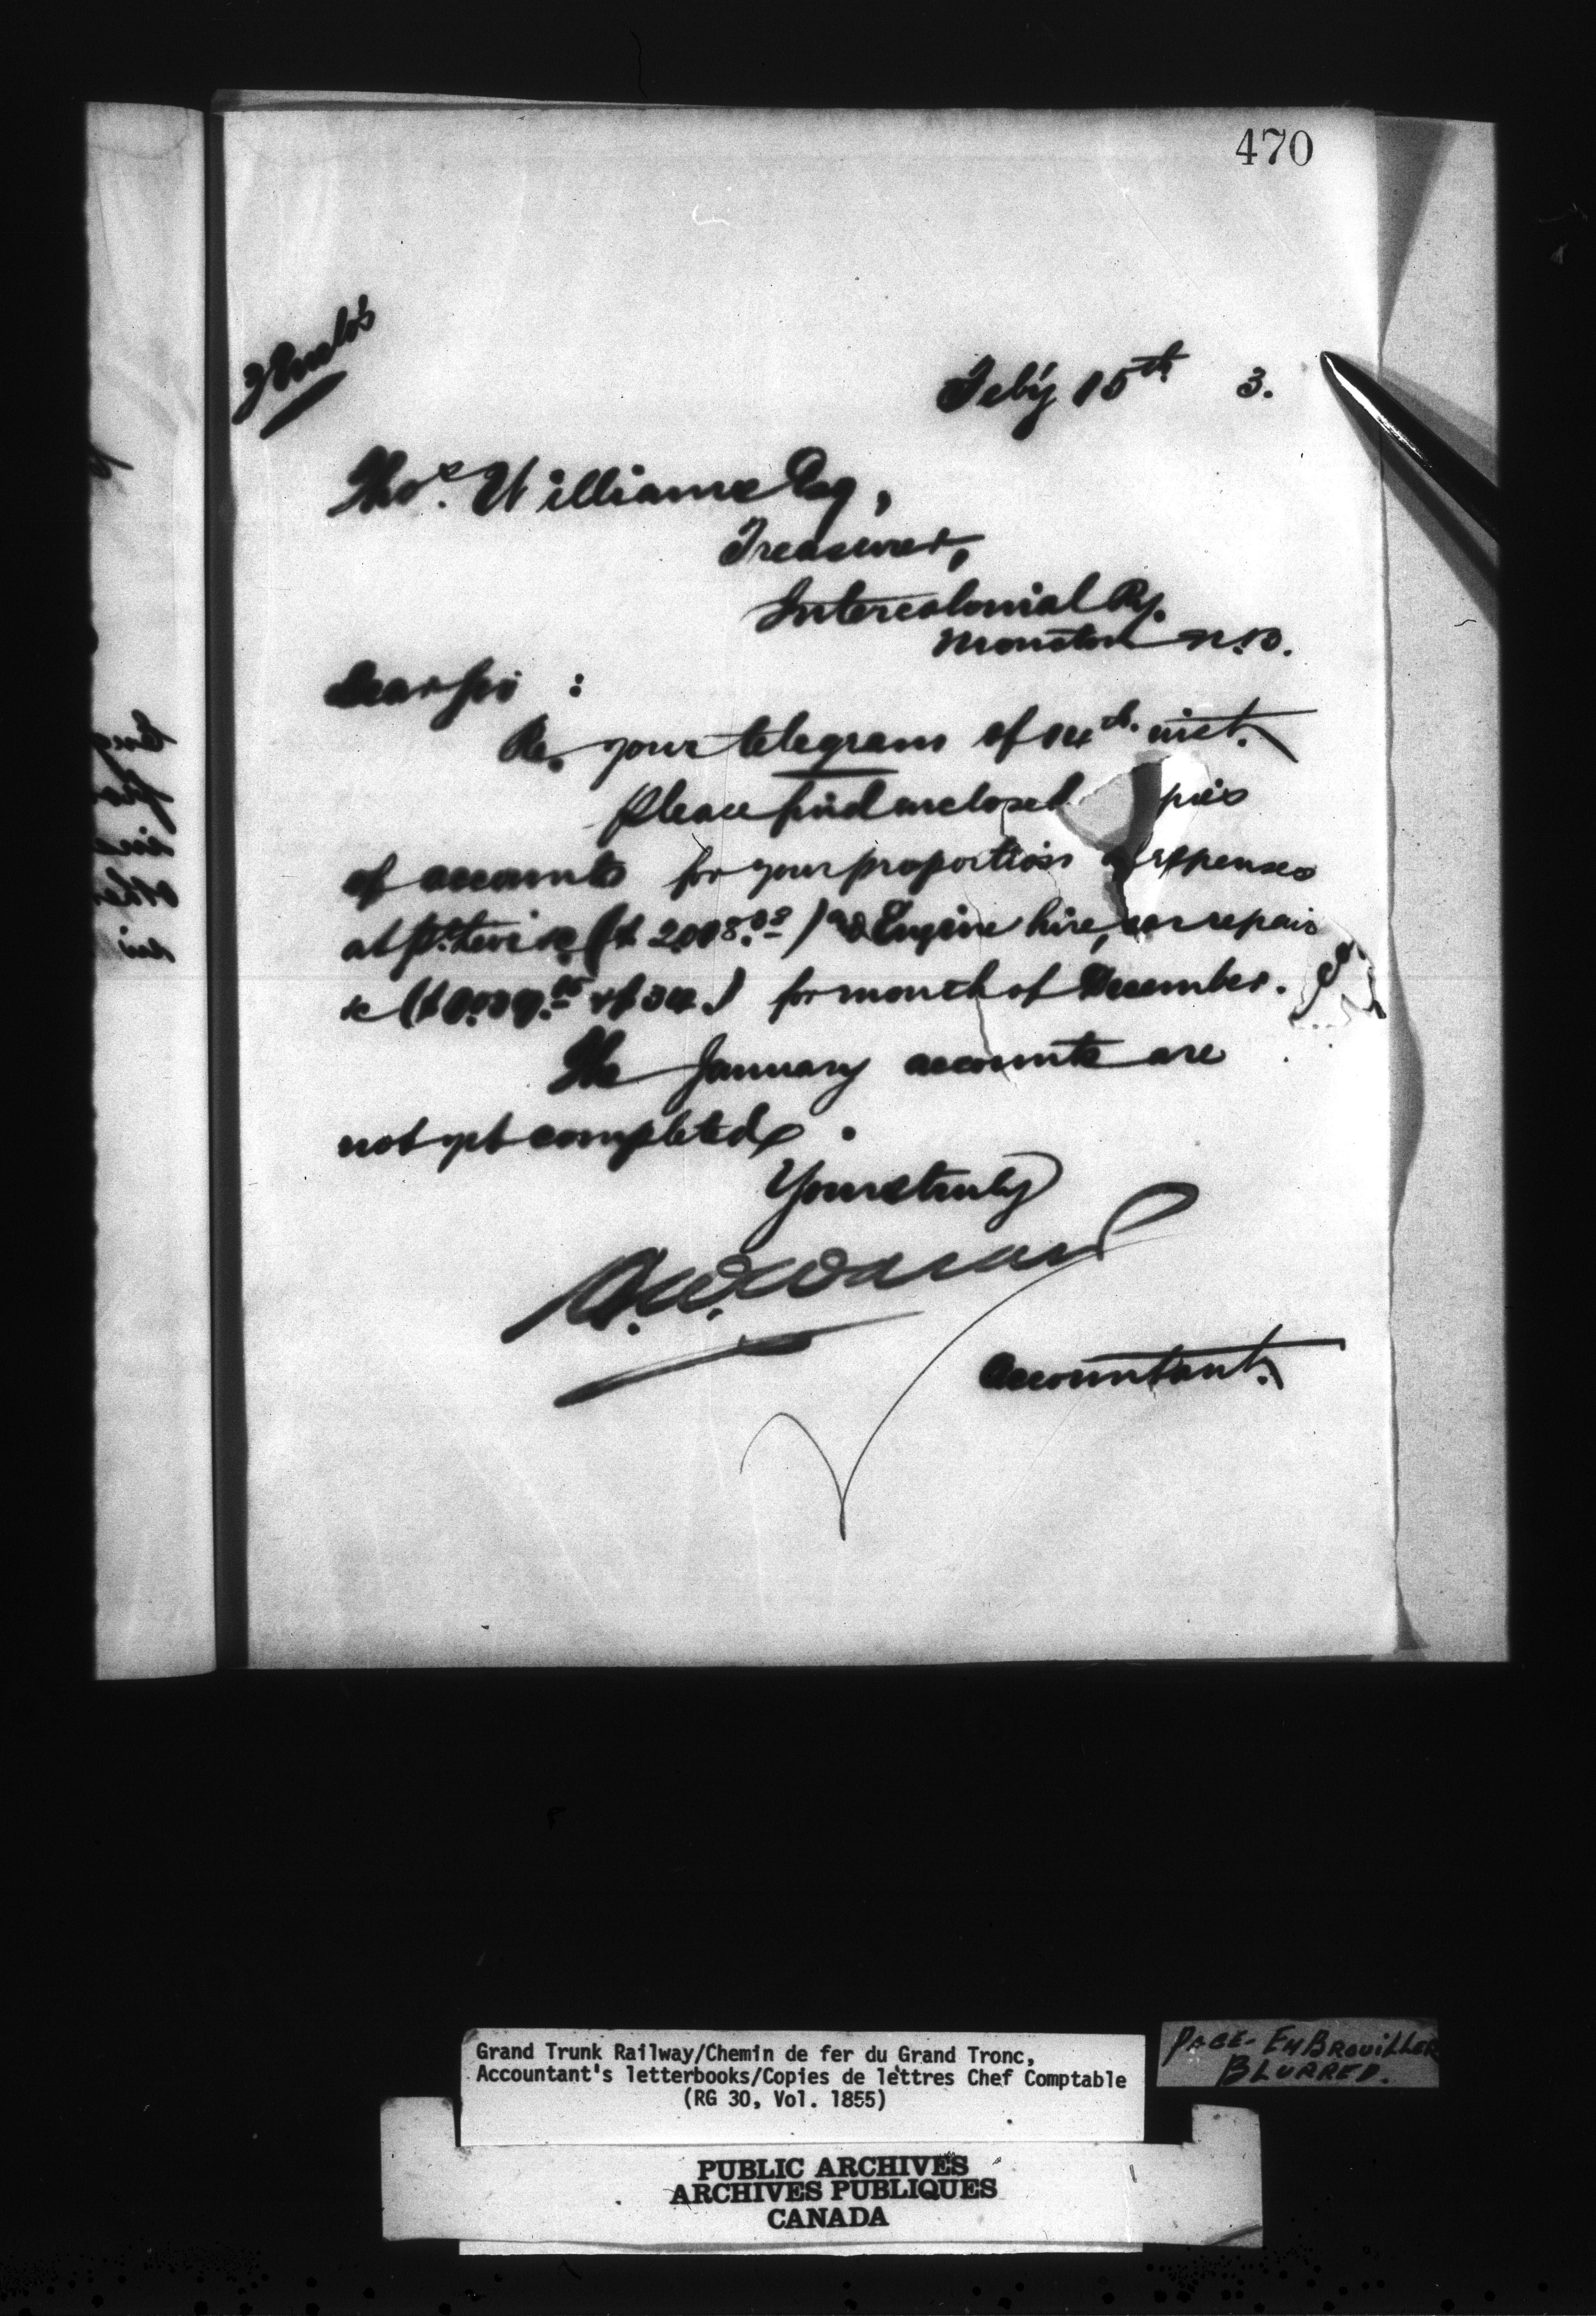 470
3 Enclo's
Feb'y 15th 3.
Thos. Williams Esq,
Treasurer,
Intercolonial Ry.
Moncton N.B.
Dear Sir :
Re. your telegram of 14th. inst.
Please find enclosed pies
of accounts for your proportion of expenses
at Pt. Levi &c ($ 2,008. ) and Engine hire, car repairs
&c ( ) for month of December.
The January accounts are
not yet completed .
Yours truly
Accountant.
Grand Trunk Railway/Chemin de fer du Grand Tronc,
Accountant's letterbooks/Copies de lettres Chef Comptable
(RG 30, Vol. 1855)
PAGE- EMBROUILLER
BLURRED.
PUBLIC ARCHIVES
ARCHIVES PUBLIQUES
CANADA